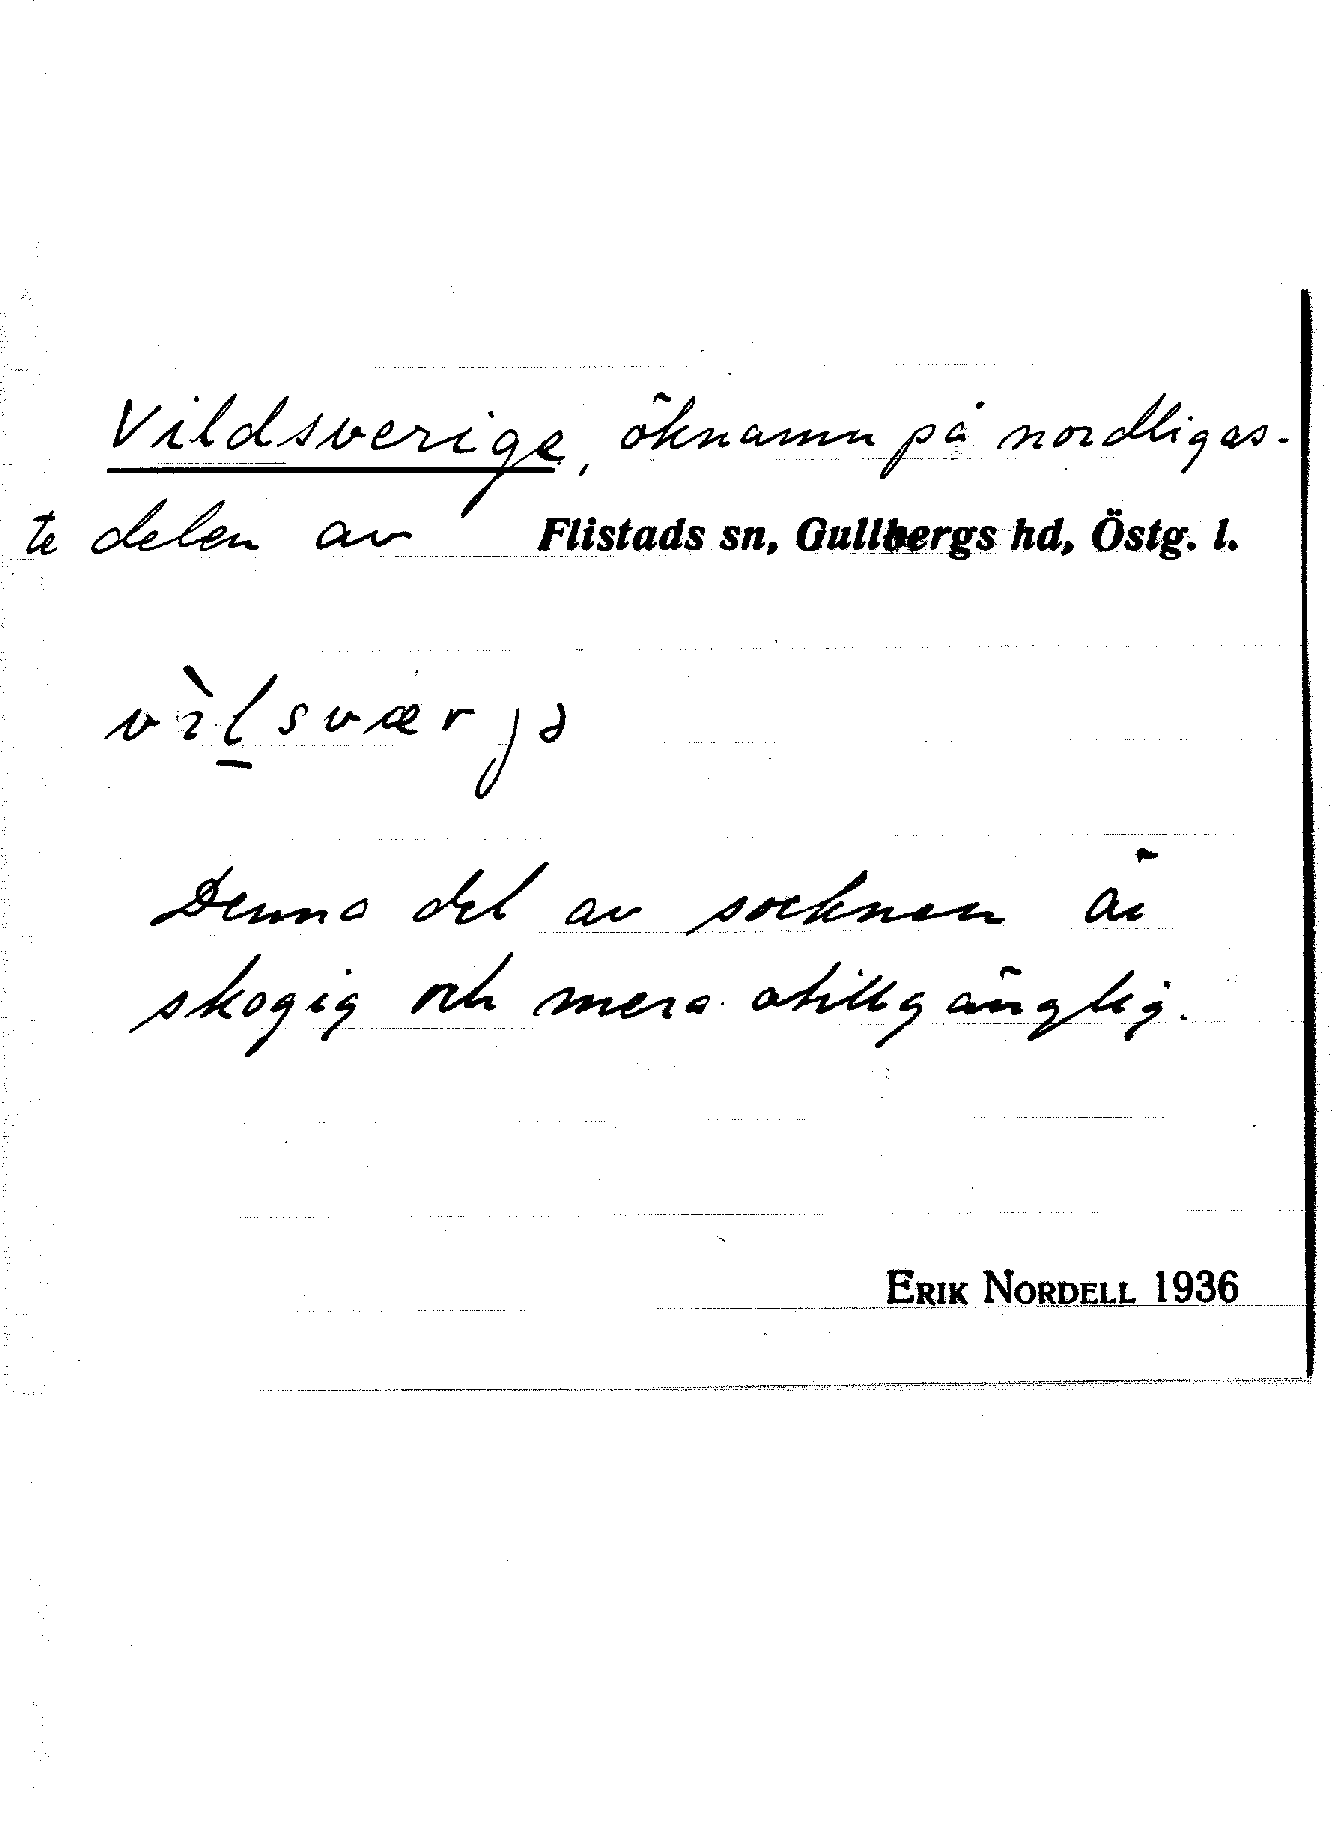 Vildsverige, öknamn på nordligas-
te delen av Flistads sn, Gullbergs hd, Östg. l.
vìl̠sværjə
Denna del av socknen är
skogig och mera otillgänglig.
ERIK NORDELL 1936